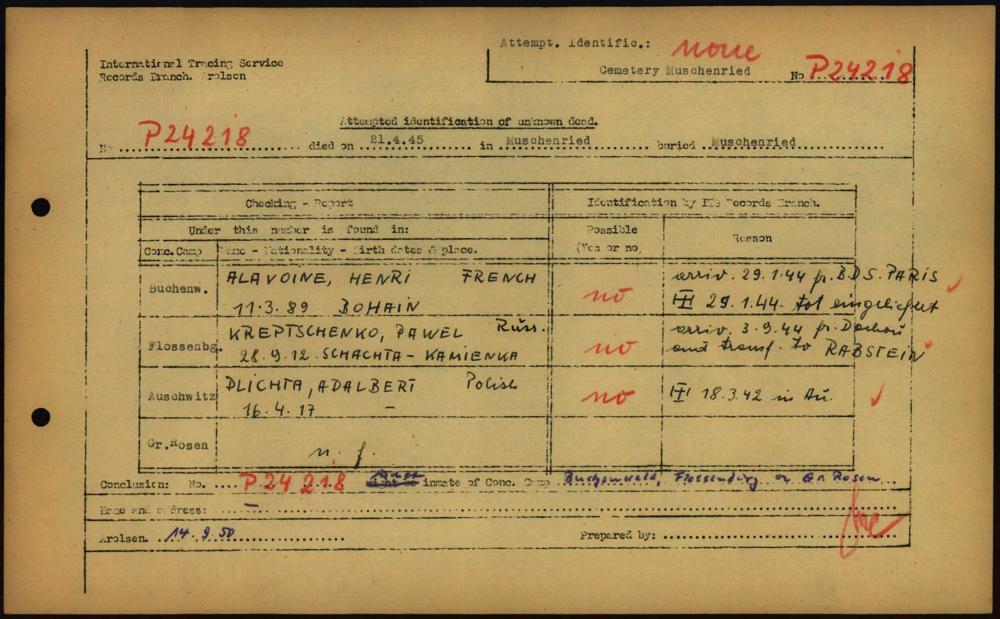 International Tracing Service
Records Branch. Arolsen
Attempt. Identific.: none
Cemetery Muschenried No P24218
Attempted identification of unknown dead.
No P24218 died on 21.4.45 in Muschenried buried Muschenried
Checking - Report
Identification by ITS Records Branch.
Under this number is found in:
Possible
(Yes or no)
Reason
Conc.Camp
Name - Nationality - Birth dates & place.
Buchenw.
ALAVOINE, HENRI FRENCH
11.3.89 BOHAIN
no
arriv. 29.1.44 fr. B.D.S. PARIS
29.1.44. tot eingeliefert
Flossenbg.
KREPTSCHENKO, PAWEL Russ.
28.9.12. SCHACHTA-KAMIENKA
no
arriv. 3.9.44 fr. Dachau
and transf. to RABSTEIN
Auschwitz
PLICHTA, ADALBERT Polish
16.4.17 -
no
18.3.42 in Au.
Gr.Rosen
n. f.
Conclusion: No. P 24 218 inmate of Conc. Camp Buchenwald, Flossenbürg or Gr. Rosen
Name and address: -
Arolsen. 14.9.50 Prepared by: